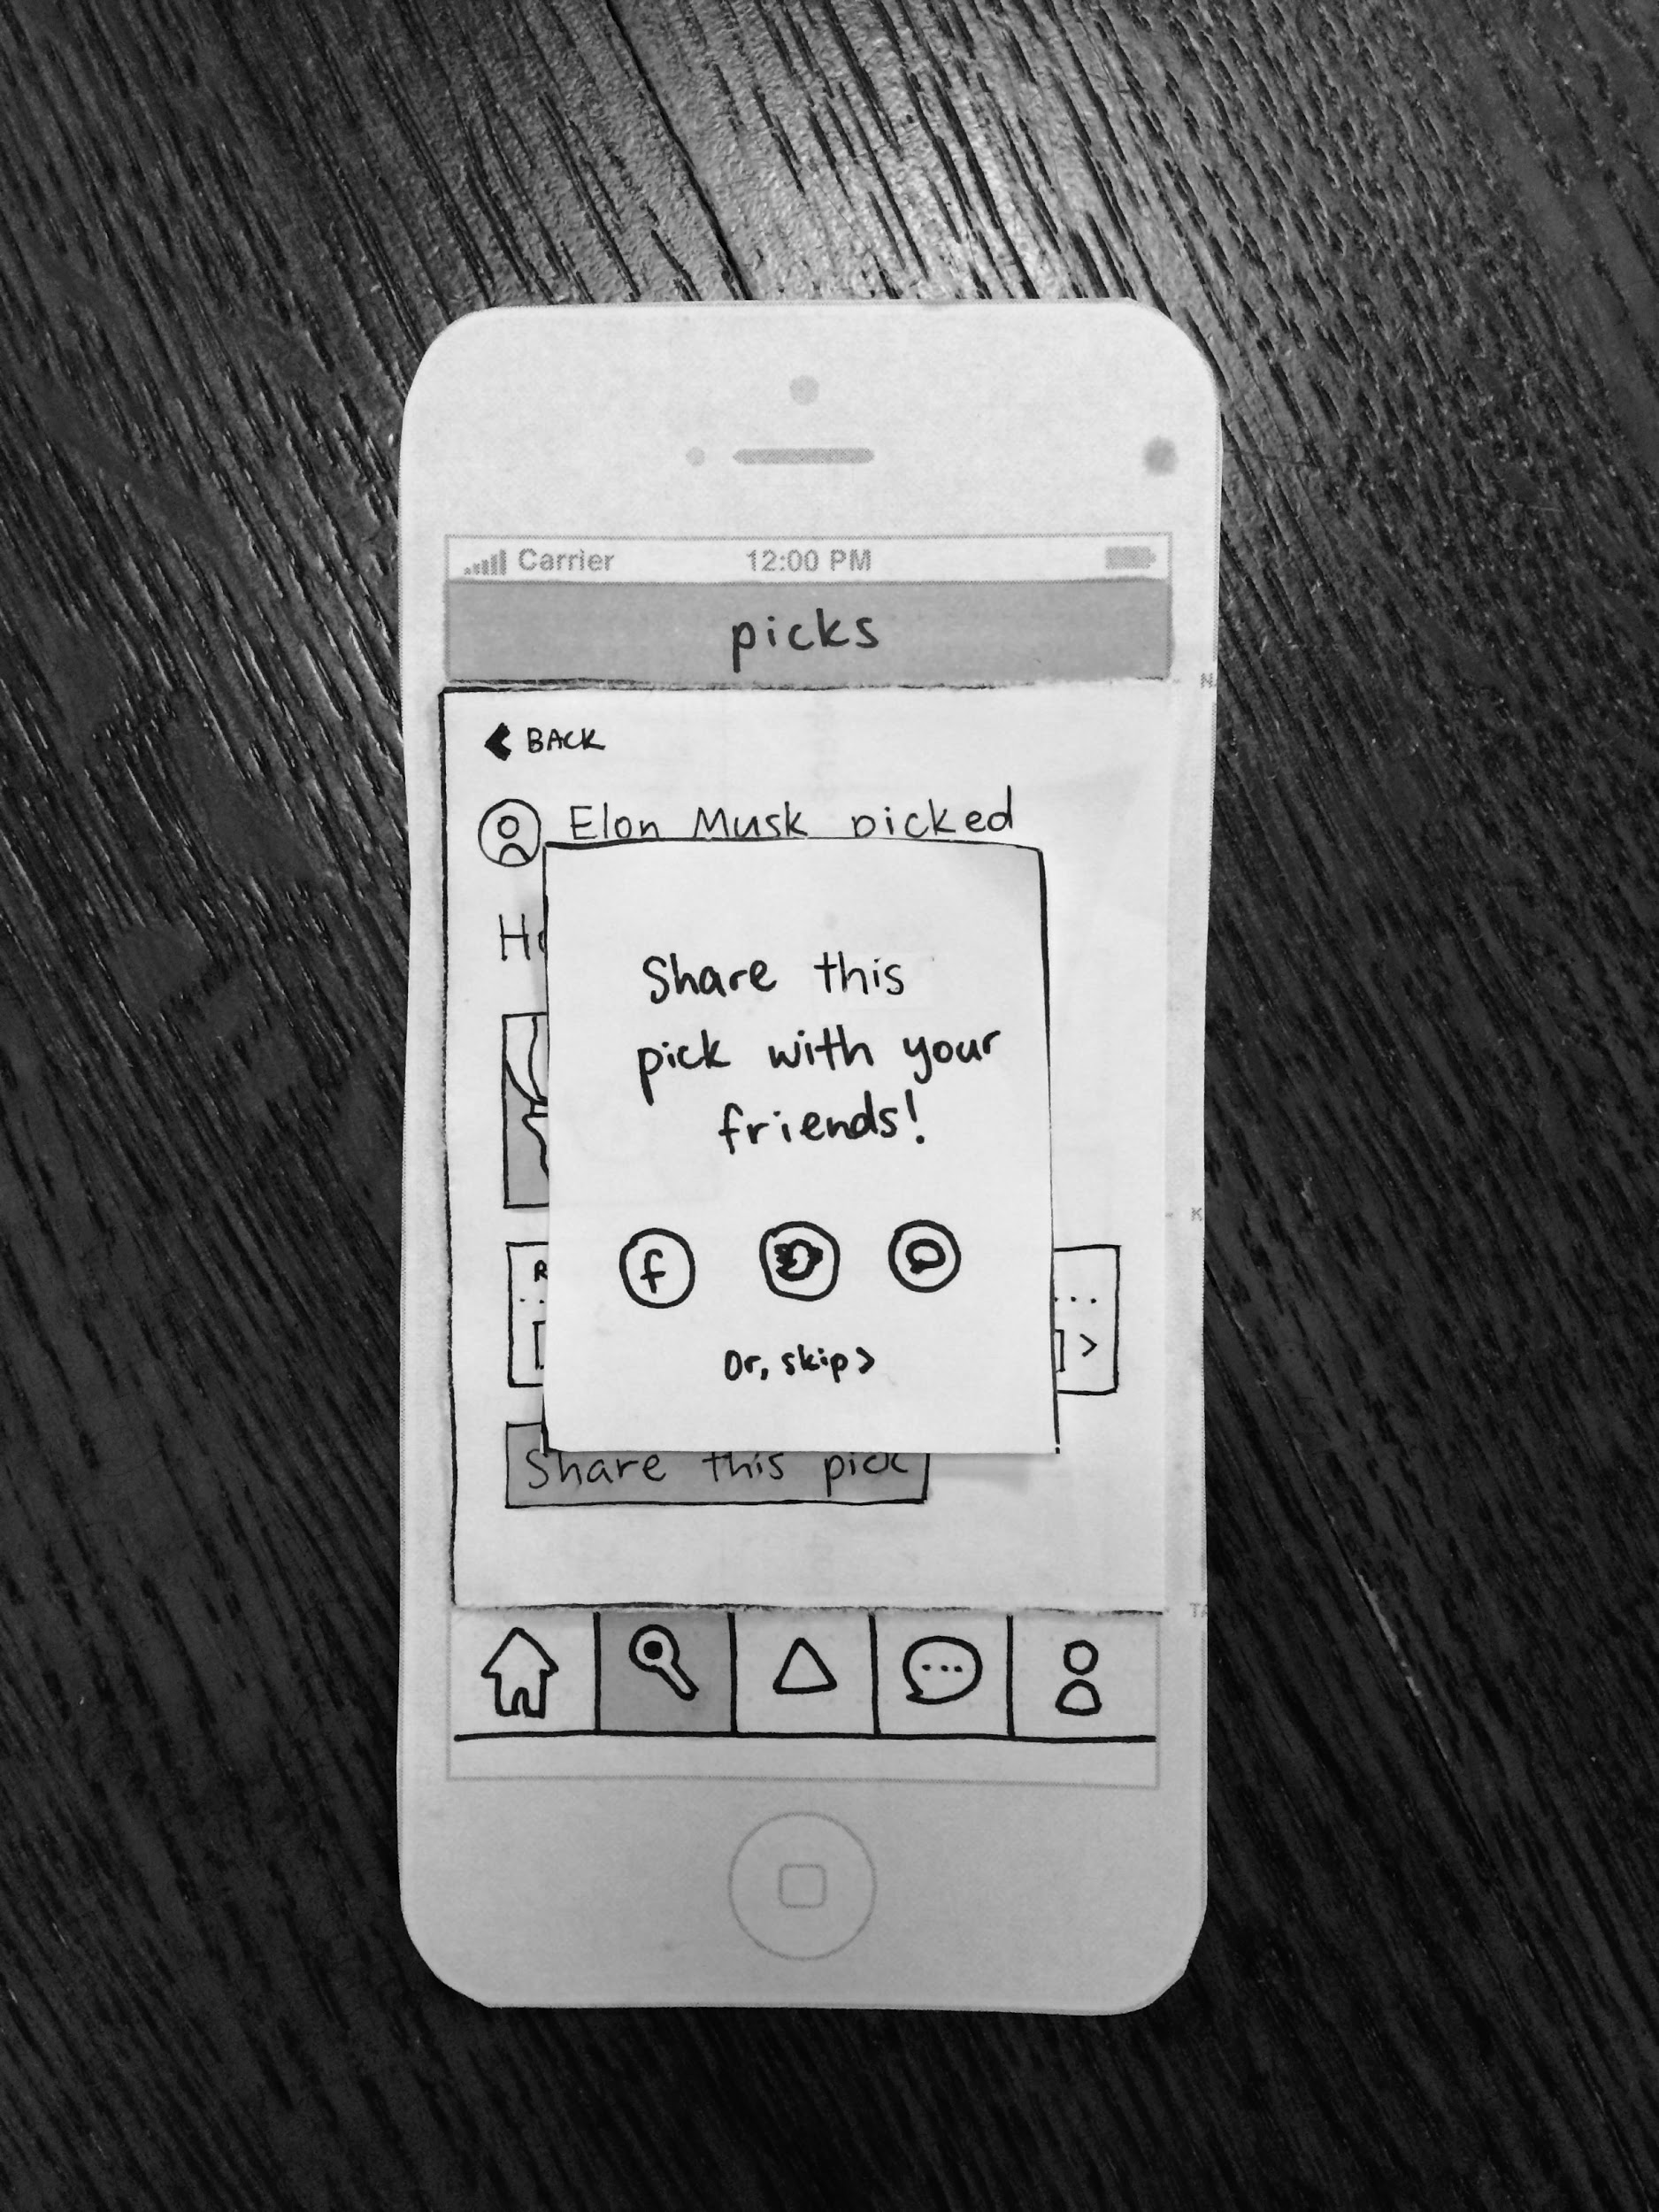 Carrier 12:00 PM
picks
BACK
Elon Musk picked
Share this
pick with your
friends!
f
Or, skip >
Share this pick